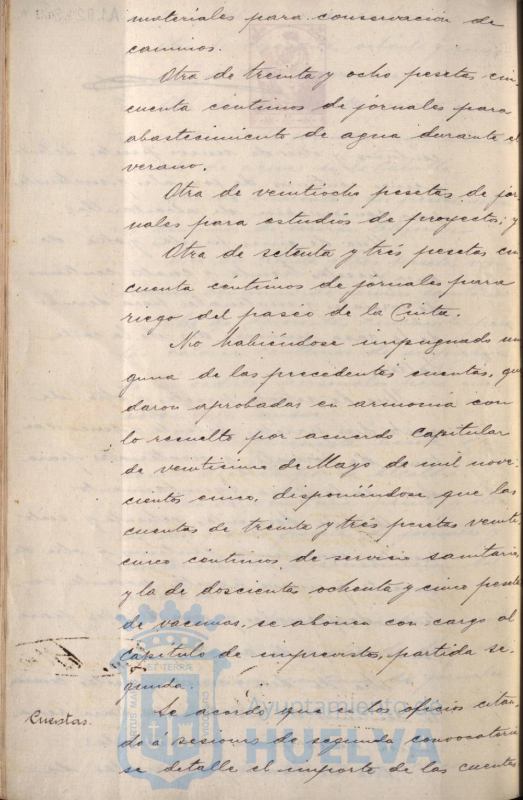 materiales para conservación de
caminos.
Otra de treinta y ocho pesetas cin-
cuenta céntimos de jornales para
abastecimiento de agua durante el
verano.
Otra de veintiocho pesetas de jor-
nales para estudios de proyectos; y
Otra de setenta y tres pesetas cin
cuenta céntimos de jornales para
riego del paseo de la Cinta.
No habiéndose impugnado nin
guna de las precedentes cuentas, que
daron aprobadas en armonía con
lo resuelto por acuerdo capitular
de veintiuno de Mayo de mil nove-
cientos cinco, disponiéndose que las
cuentas de treinta y tres pesetas veinti
cinco céntimos de servicio sanitario
y la de doscientas ochenta y cinco pesetas
de vacunas, se abonen con cargo al
capítulo de imprevistos, partida se-
gunda.
Cuentas.
Se acordó que en los oficios citan-
do á sesiones de segunda convocatoria
se detalle el importe de las cuentas
Ayuntamiento de
HUELVA